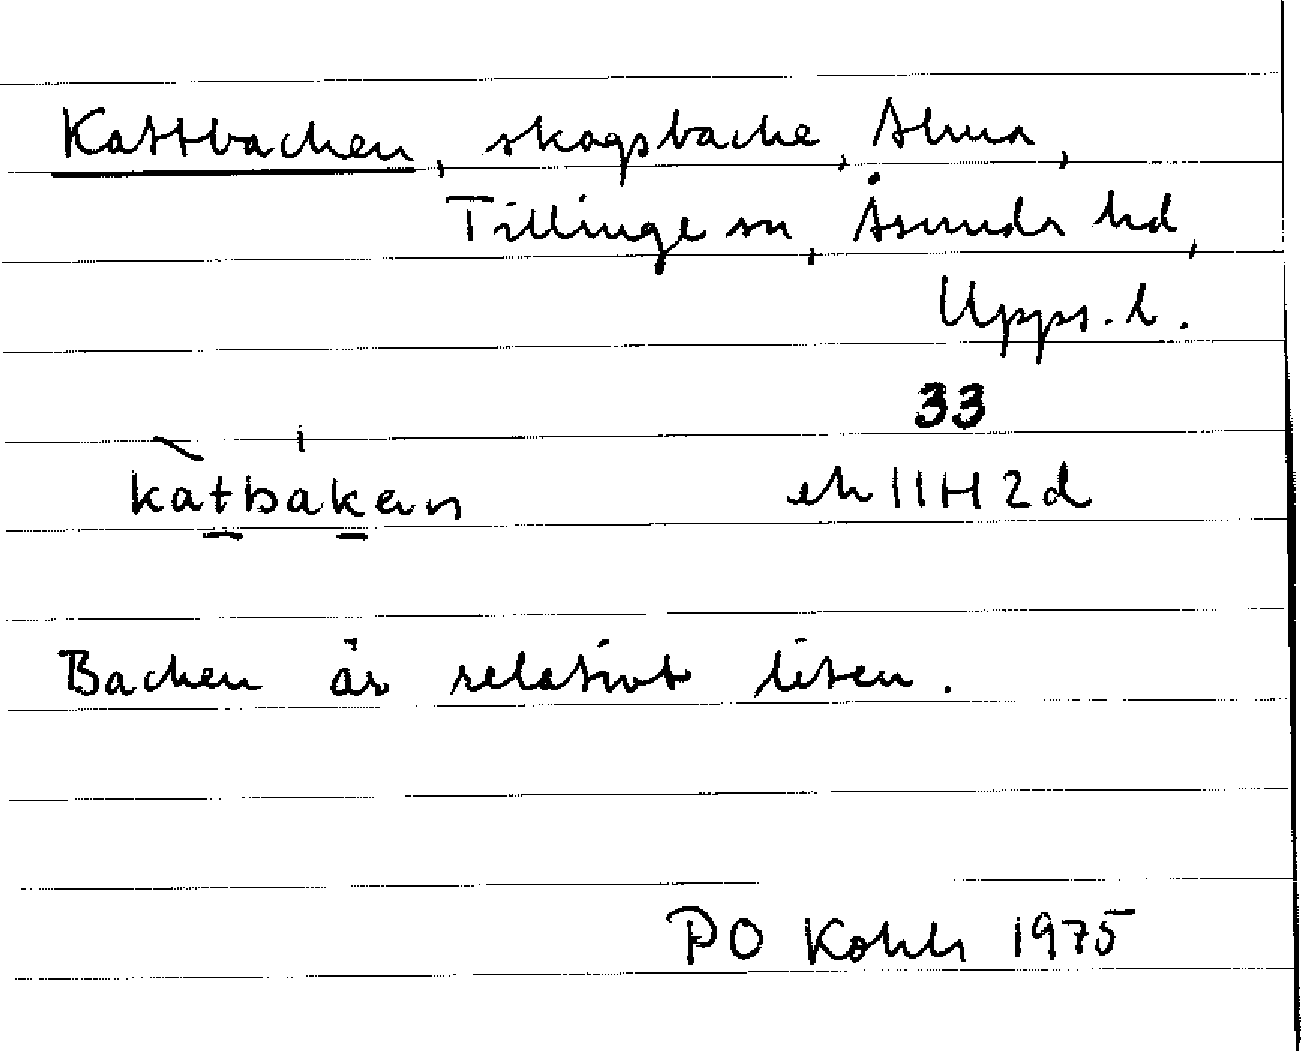 Kattbacken, skogsbacke, Älma,
Tillinge sn, Åsunda hd,
Upps. l.
33
katbaken ek 11H2d
Backen är relativt liten.
PO Kohls 1975